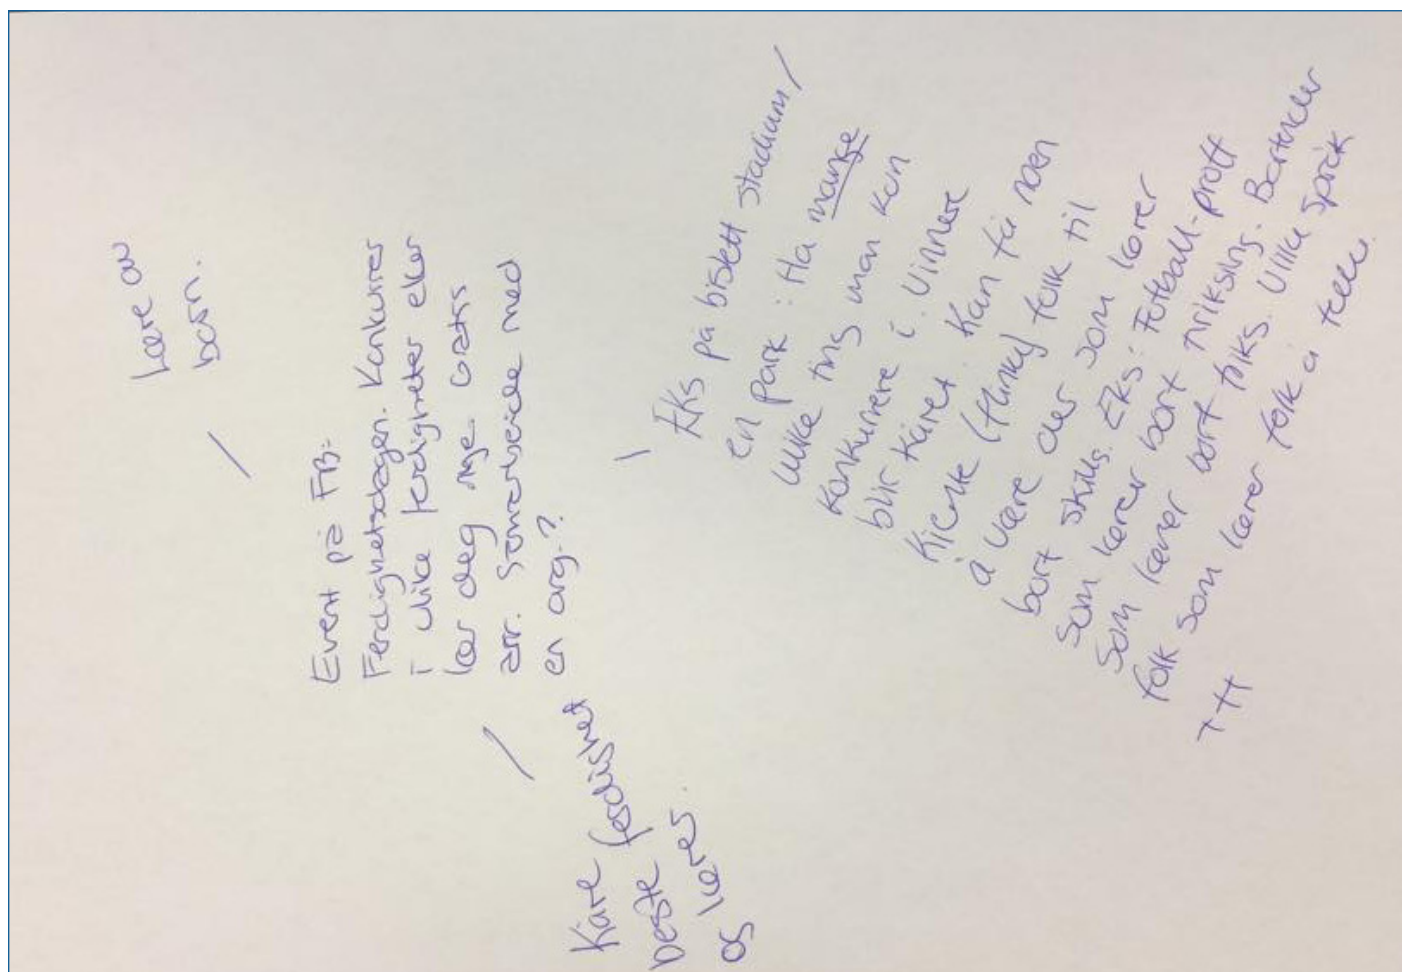 Lære av
barn.
Event på FB:
Ferdighetsdagen. Konkurrer
i ulike ferdigheter eller
lær deg nye. Gratis
arr. Samarbeide med
en org.?
Kåre ferdighet
beste
og læres.
Eks på bislett stadium/
en park: Ha mange
ulike ting man kan
konkurrere i. Vinnere
blir kåret. Kan få noen
kjente (flinke) folk til
å være der som lærer
bort skills. Eks: Fotball-proff
som lærer bort triksing. Bartender
som lærer bort triks. Ulike språk
folk som lærer folk å telle.
+++